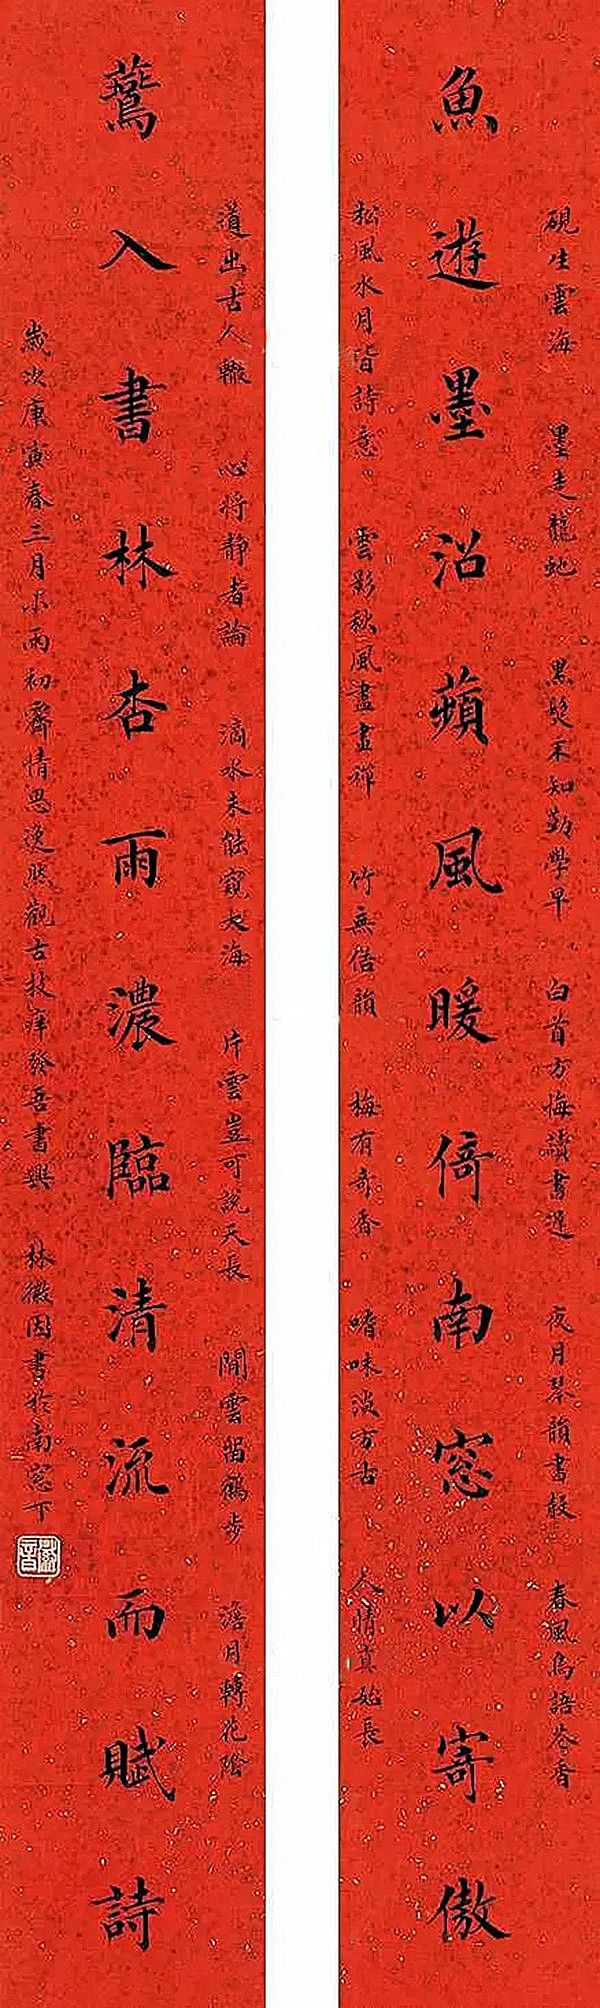 硯生雲海 墨走龍蛇 黑髮不知勤學早 白首方悔讀書遲 夜月琴韻書聲 春風鳥語花香
魚遊墨沼蘋風暖倚南窓以寄傲
松風水月皆詩意 雲影秋風盡畫禪 竹無俗韻 梅有奇香 嗜味淡方古 人情真始長
道出古人轍 心將靜者論 滴水未能窺大海 片雲豈可說天長 閒雲留鶴步 澹月轉花陰
鶯入書林杏雨濃臨清流而賦詩
歲次庚寅春三月小雨初霽情思逸然觀古技痒發吾書興 林徽因書於南窓下